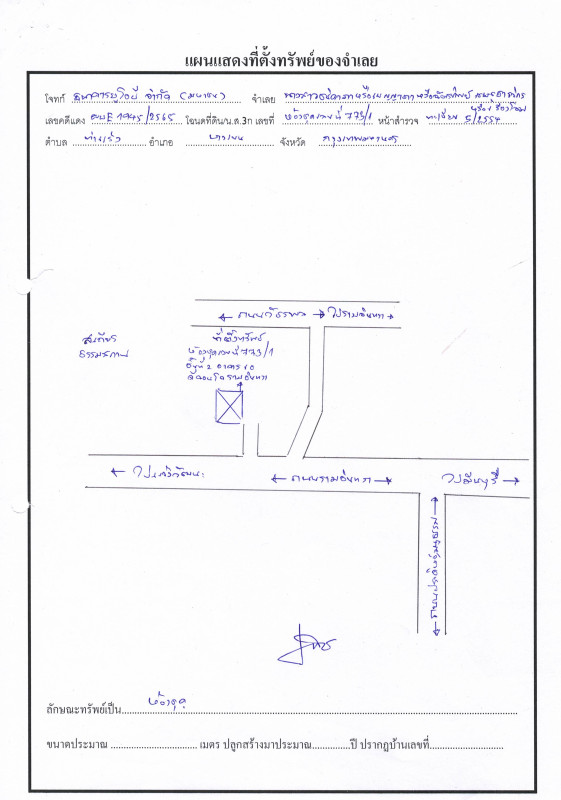 แผนแสดงที่ตั้งทรัพย์ของจำเลย
โจทก์ ธนาคารยูโอบี จำกัด (มหาชน) จำเลย
เลขคดีแดง ผบE1945/2565 โฉนดที่ดิน/น.ส.3ก เลขที่ ห้องชุดเลขที่ 773/1 หน้าสำรวจ ทะเบียน 5/2554
ตำบล ท่าแร้ง อำเภอ บางเขน จังหวัด กรุงเทพมหานคร
ถนนวัชรพล ไปรามอินทรา
เสถียร
ธรรมสถาน
ที่ตั้งทรัพย์
ห้องชุดเลขที่ 773/1
ชั้นที่ 2 อาคาร
รามอินทรา
ไปแจ้งวัฒนะ
ถนนรามอินทรา
ไปมีนบุรี
ถนนประดิษฐ์มนูธรรม
ลักษณะทรัพย์เป็น ห้องชุด
ขนาดประมาณ เมตร ปลูกสร้างมาประมาณ ปี ปรากฏบ้านเลขที่